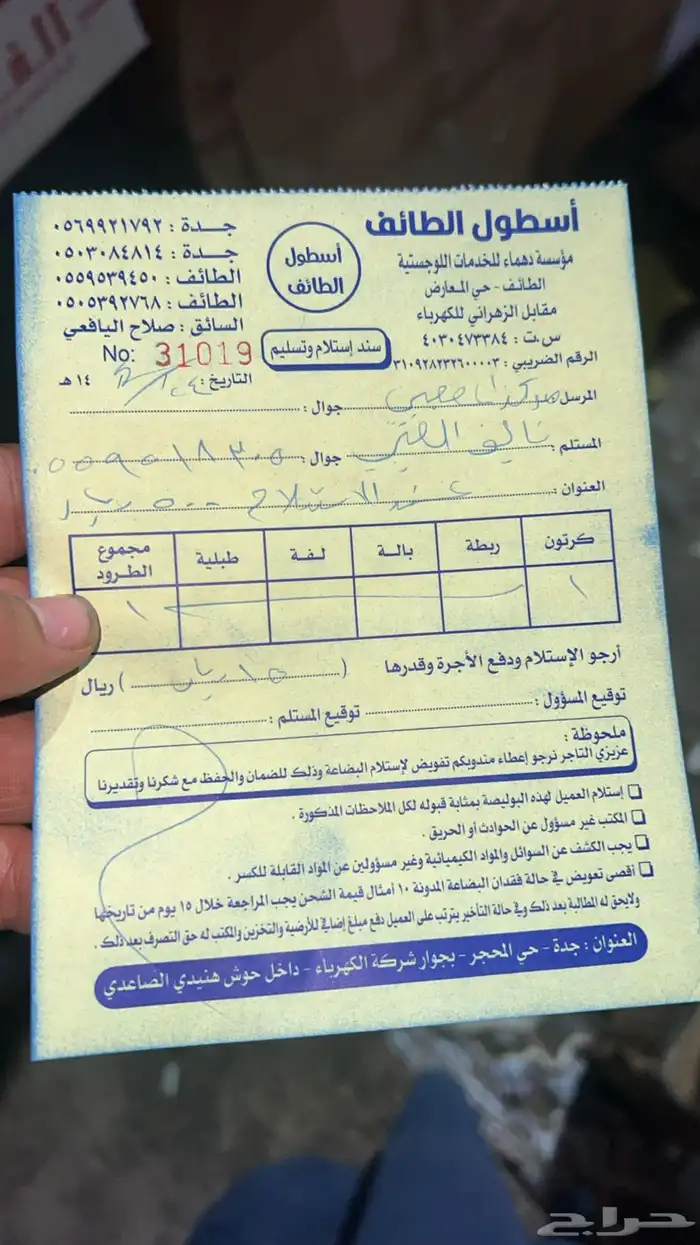 أسطول الطائف
مؤسسة دهماء للخدمات اللوجستية
الطائف - حي المعارض
مقابل الزهراني للكهرباء
س.ت : ٤٠٣٠٤٧٣٣٨٤
الرقم الضريبي : ٣١٠٩٢٨٢٣٢٦٠٠٠٠٣
أسطول
الطائف
سند إستلام وتسليم
جدة : ٠٥٦٩٩٢١٧٩٢
جدة : ٠٥٠٣٠٨٤٨١٤
الطائف : ٠٥٥٩٥٣٩٤٥٠
الطائف : ٠٥٠٥٣٩٢٧٦٨
السائق : صلاح اليافعي
No: 31019
التاريخ : ١٤ هـ
المرسل : جوال :
المستلم : نايف جوال : ٠٥٥٩٠١٨٣٠٥
العنوان : عند الاستلام ٥٠٠ ريال
كرتون ربطة بالة لفة طبلية مجموع الطرود
١ ١
أرجو الإستلام ودفع الأجرة وقدرها ( ١٥ ريال ) ريال
توقيع المسؤول : توقيع المستلم :
ملحوظة :
عزيزي التاجر نرجو إعطاء مندوبكم تفويض لإستلام البضاعة وذلك للضمان والحفظ مع شكرنا وتقديرنا
إستلام العميل لهذه البوليصة بمثابة قبوله لكل الملاحظات المذكورة .
المكتب غير مسؤول عن الحوادث أو الحريق .
يجب الكشف عن السوائل والمواد الكيميائية وغير مسؤولين عن المواد القابلة للكسر .
أقصى تعويض في حالة فقدان البضاعة المدونة ١٠ أمثال قيمة الشحن يجب المراجعة خلال ١٥ يوم من تاريخها
ولايحق له المطالبة بعد ذلك وفي حالة التأخير يترتب على العميل دفع مبلغ إضافي للأرضية والتخزين والمكتب له حق التصرف بعد ذلك .
العنوان : جدة - حي المحجر - بجوار شركة الكهرباء - داخل حوش هنيدي الصاعدي
حراج